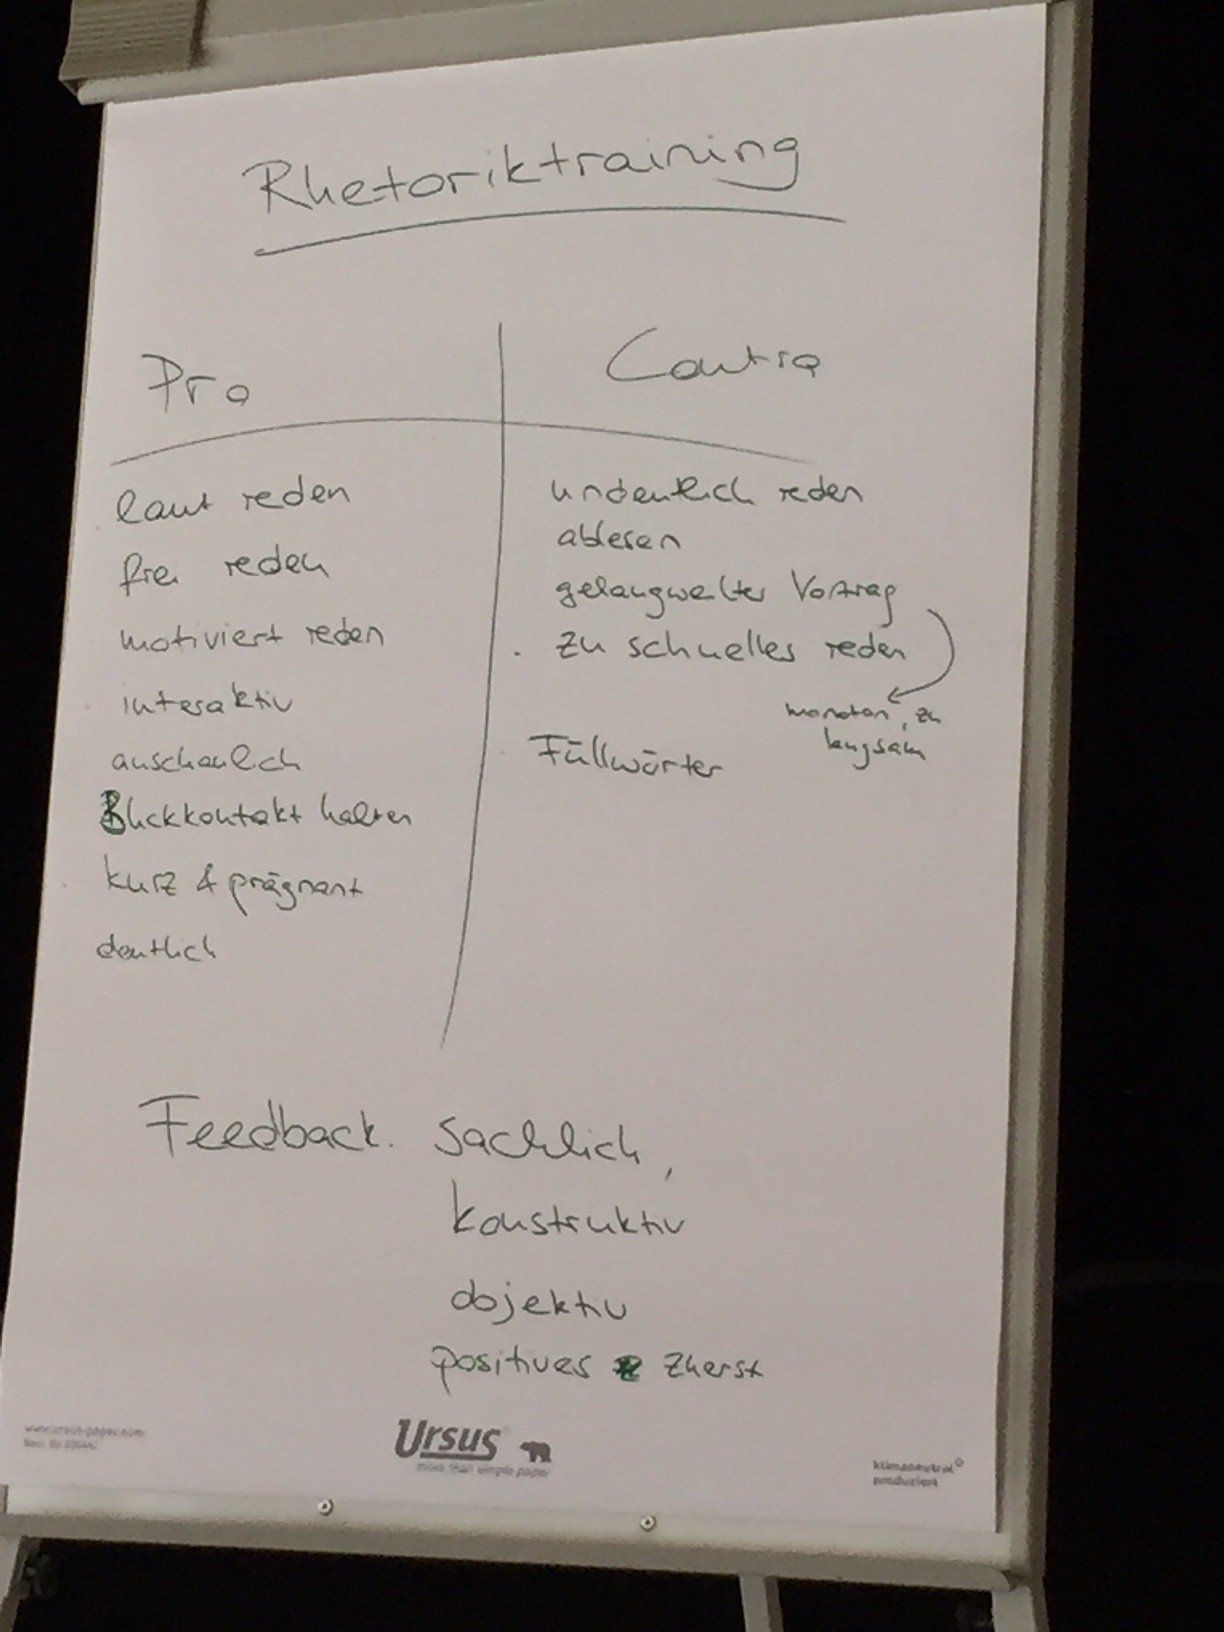 Rhetoriktraining
Pro
laut reden
frei reden
motiviert reden
interaktiv
anschaulich
Blickkontakt halten
kurz & prägnant
deutlich
Contra
undeutlich reden
ablesen
gelangweilter Vortrag
zu schnelles reden
monoton, zu
langsam
Füllwörter
Feedback: sachlich,
konstruktiv
objektiv
positives zuerst
Ursus
more than simple paper
klimaneutral
produziert